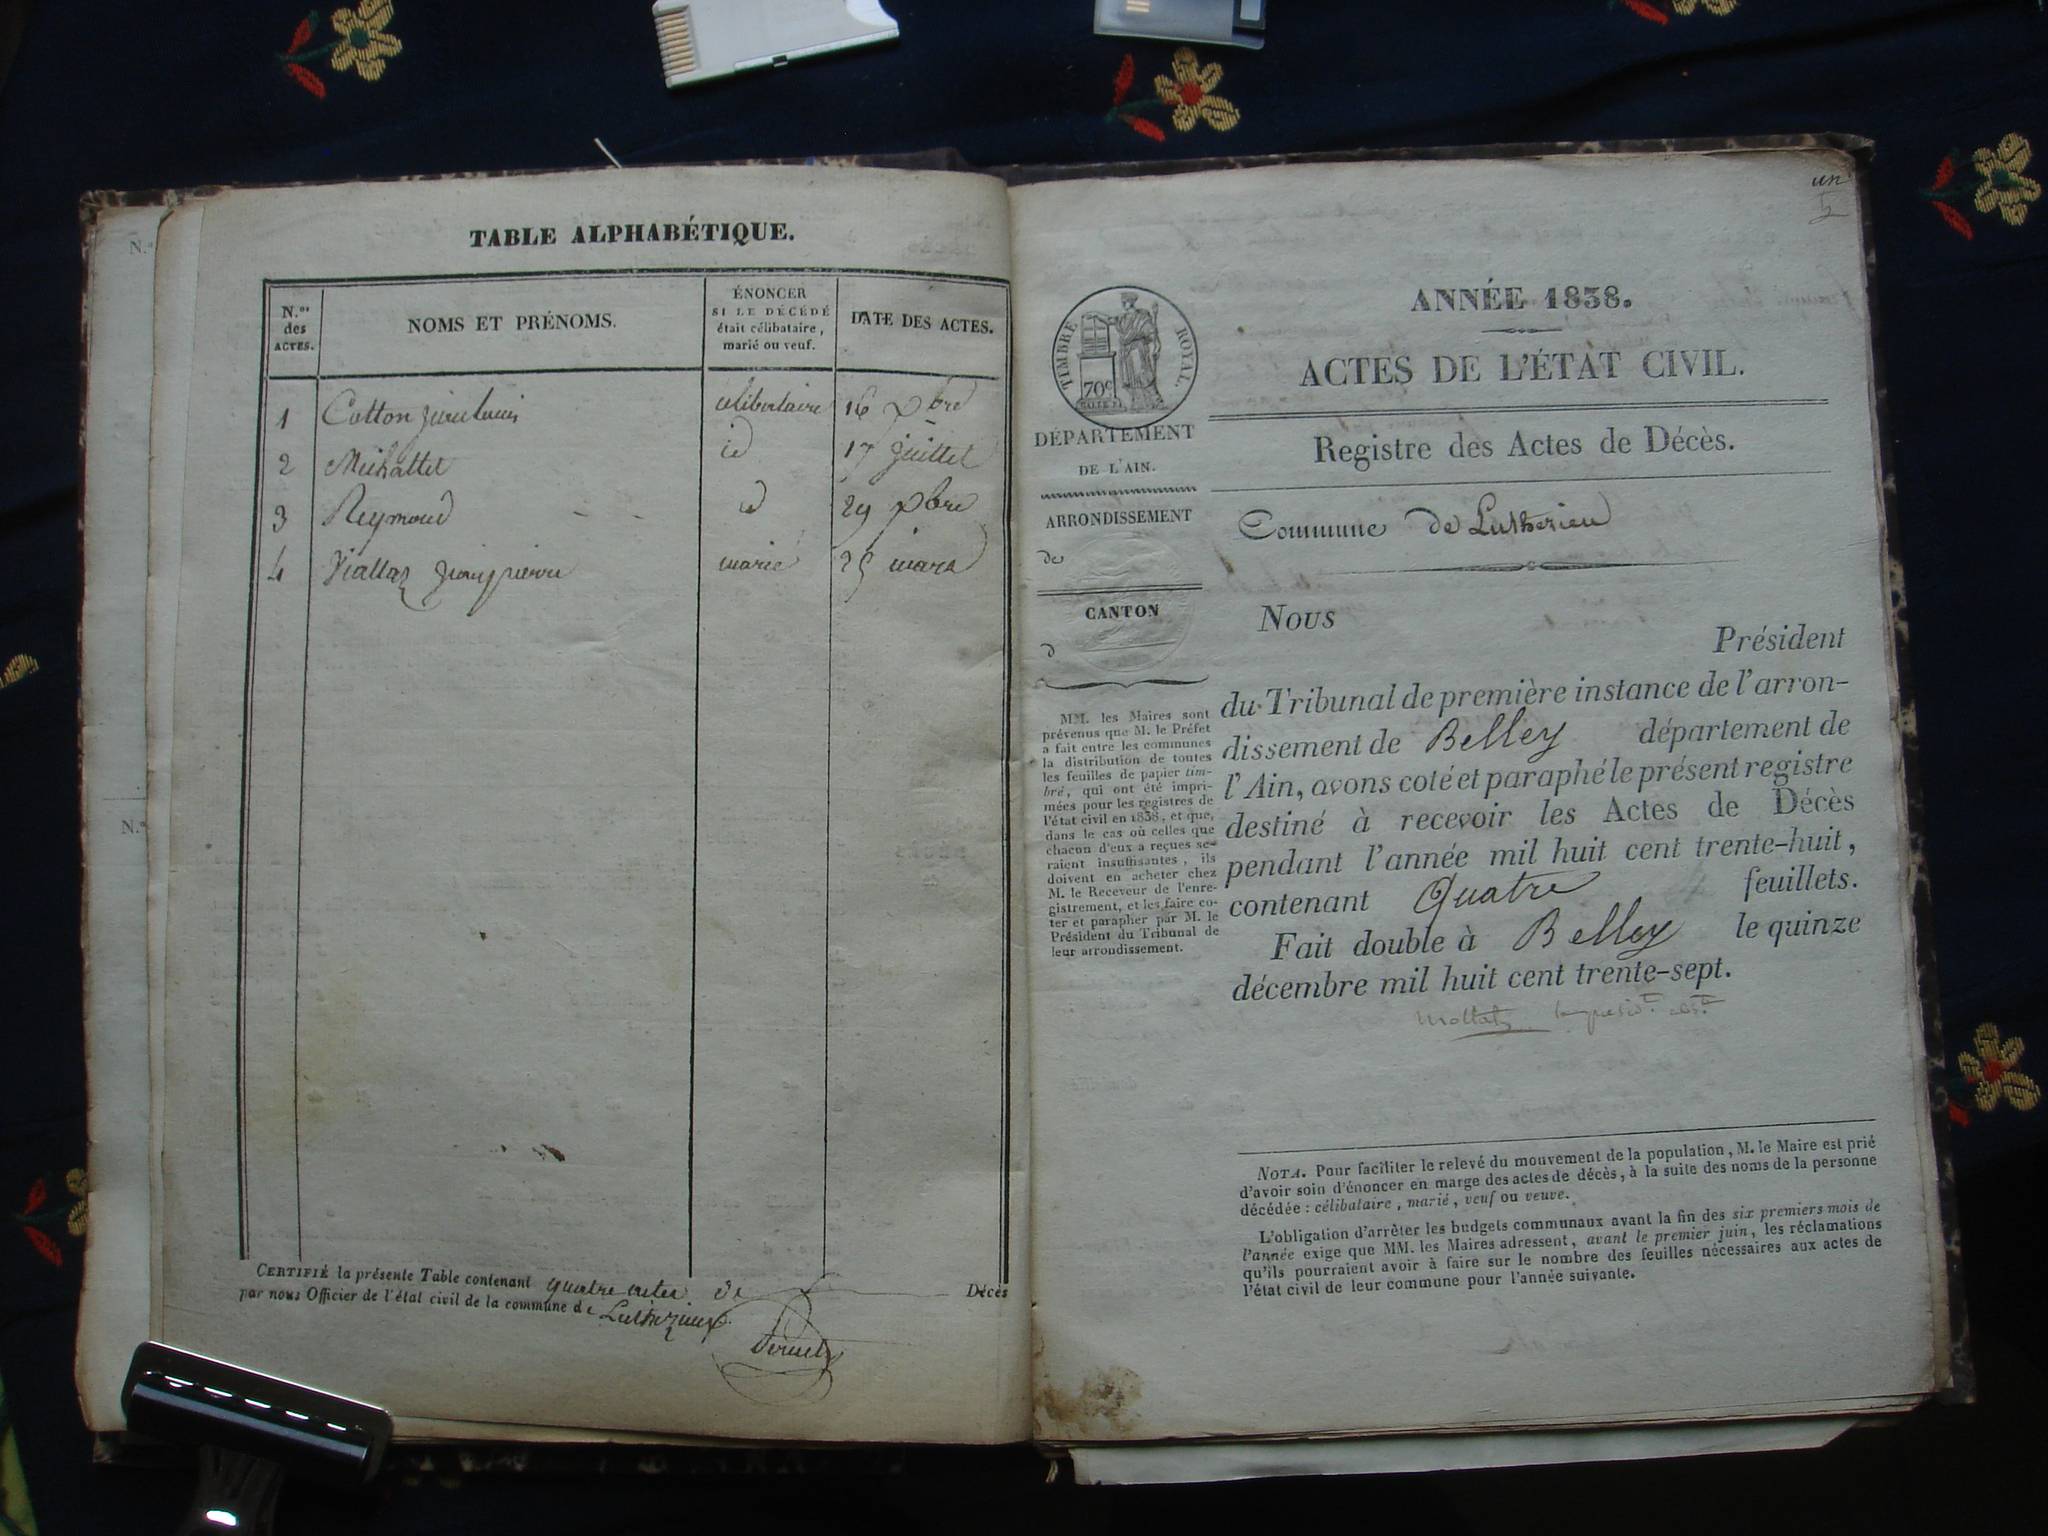 TABLE ALPHABÉTIQUE.
N.os des ACTES.
NOMS ET PRÉNOMS.
ÉNONCER
SI LE DÉCÉDÉ
était célibataire,
marié ou veuf.
DATE DES ACTES.
1 Cotton jean louis celibataire 16 xbre
2 Michallet id 17 juillet
3 Reymond id 29 xbre
4 Viallaz jean pierre marié 25 mars
CERTIFIÉ la présente Table contenant quatre actes de Décès
par nous Officier de l'état civil de la commune de Luthezieu
N.o
N.o
un
5
ANNÉE 1838.
TIMBRE ROYAL.
70c
ACTES DE L'ÉTAT CIVIL.
DÉPARTEMENT
DE L'AIN.
Registre des Actes de Décès.
ARRONDISSEMENT
de
Commune de Luthezieu
CANTON
d
Nous
Président
du Tribunal de première instance de l'arron-
dissement de Belley département de
l'Ain, avons coté et paraphé le présent registre
destiné à recevoir les Actes de Décès
pendant l'année mil huit cent trente-huit,
contenant Quatre feuillets.
Fait double à Belley le quinze
décembre mil huit cent trente-sept.
MM. les Maires sont
prévenus que M. le Préfet
a fait entre les communes
la distribution de toutes
les feuilles de papier tim-
bré, qui ont été impri-
mées pour les registres de
l'état civil en 1838, et que,
dans le cas où celles que
chacun d'eux a reçues se-
raient insuffisantes, ils
doivent en acheter chez
M. le Receveur de l'enre-
gistrement, et les faire co-
ter et parapher par M. le
Président du Tribunal de
leur arrondissement.
NOTA. Pour faciliter le relevé du mouvement de la population, M. le Maire est prié
d'avoir soin d'énoncer en marge des actes de décès, à la suite des noms de la personne
décédée : célibataire, marié, veuf ou veuve.
L'obligation d'arrêter les budgets communaux avant la fin des six premiers mois de
l'année exige que MM. les Maires adressent, avant le premier juin, les réclamations
qu'ils pourraient avoir à faire sur le nombre des feuilles nécessaires aux actes de
l'état civil de leur commune pour l'année suivante.